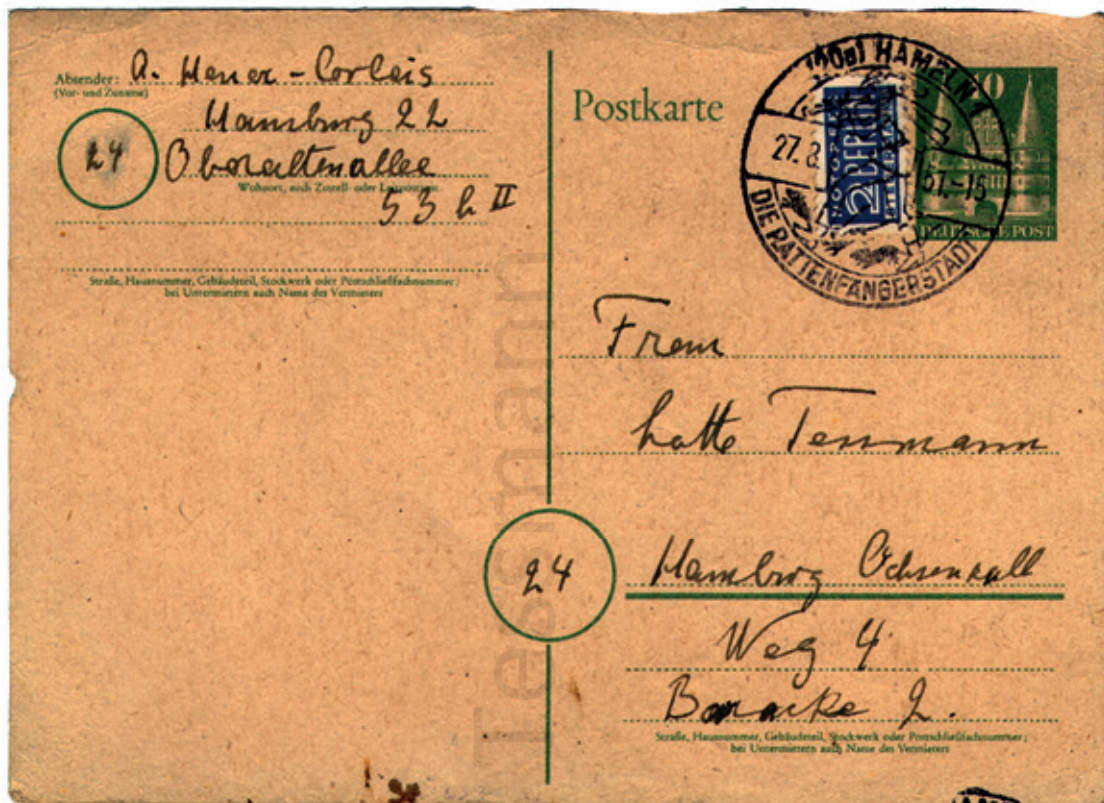 Absender: A. Meyer-Corleis
(Vor- und Zuname)
Hamburg 22
24
Oberaltenallee
Wohnort, auch Zustell- oder Leitpostamt
53 h II
Straße, Hausnummer, Gebäudeteil, Stockwerk oder Postschließfachnummer;
bei Untermietern auch Name des Vermieters
Postkarte
(10a) HAMELN 1
27.8.
51.-15
DIE RATTENFÄNGERSTADT
2 BERLIN
NOTOPFER
STEUERMARKE
10
DEUTSCHE POST
Frau
Lotte Tessmann
24
Hamburg Ochsenzoll
Weg 4
Baracke 2.
Straße, Hausnummer, Gebäudeteil, Stockwerk oder Postschließfachnummer;
bei Untermietern auch Name des Vermieters
Tessmann